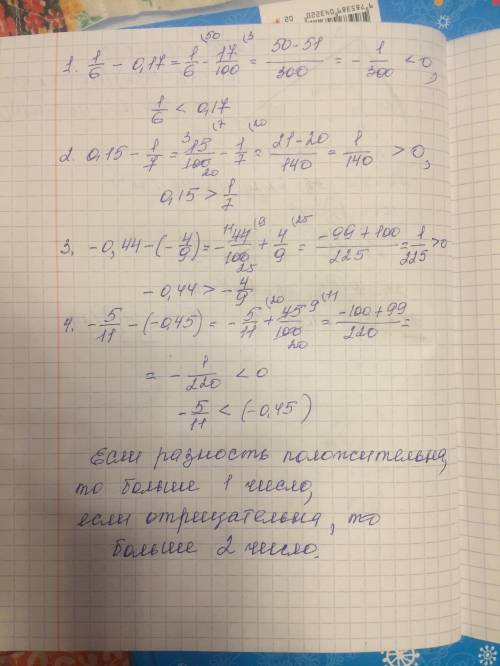 02
9785389043220
1. 1/6 - 0,17 = 1/6 (50 - 17/100 (3 = (50-51)/300 = - 1/300 < 0,
1/6 < 0,17
2. 0,15 - 1/7 = 3 15/100 20 (7 - 1/7 (20 = (21-20)/140 = 1/140 > 0,
0,15 > 1/7
3. -0,44 - (- 4/9) = - 11 44/100 25 (9 + 4/9 (25 = (-99+100)/225 = 1/225 > 0
-0,44 > - 4/9
4. - 5/11 - (-0,45) = - 5/11 (20 + 45/100 20 9 (11 = (-100+99)/220 =
= - 1/220 < 0
- 5/11 < (-0,45)
Если разность положительна,
то больше 1 число,
если отрицательна, то
больше 2 число.